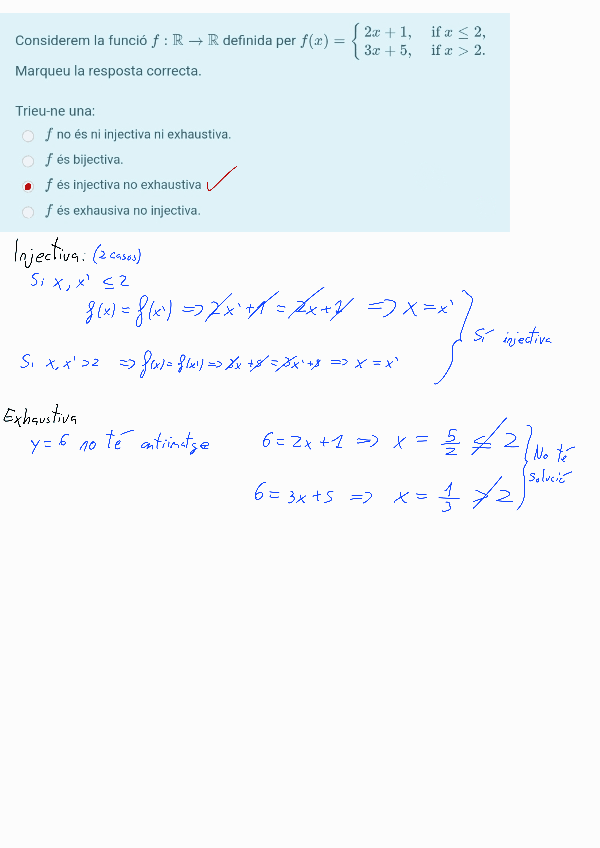 Considerem la funció f : ℝ → ℝ definida per f(x) = { 2x + 1, if x ≤ 2, 3x + 5, if x > 2.
Marqueu la resposta correcta.
Trieu-ne una:
f no és ni injectiva ni exhaustiva.
f és bijectiva.
f és injectiva no exhaustiva ✓
f és exhausiva no injectiva.
Injectiva: (2 casos)
Si x, x' ≤ 2
f(x) = f(x') => 2x' + 1 = 2x + 1 => x = x'
Sí injectiva
Si x, x' > 2 => f(x) = f(x') => 3x + 5 = 3x' + 5 => x = x'
Exhaustiva
y = 6 no té antiimatge 6 = 2x + 1 => x = 5/2 ≰ 2
No té solució
6 = 3x + 5 => x = 1/3 ≯ 2